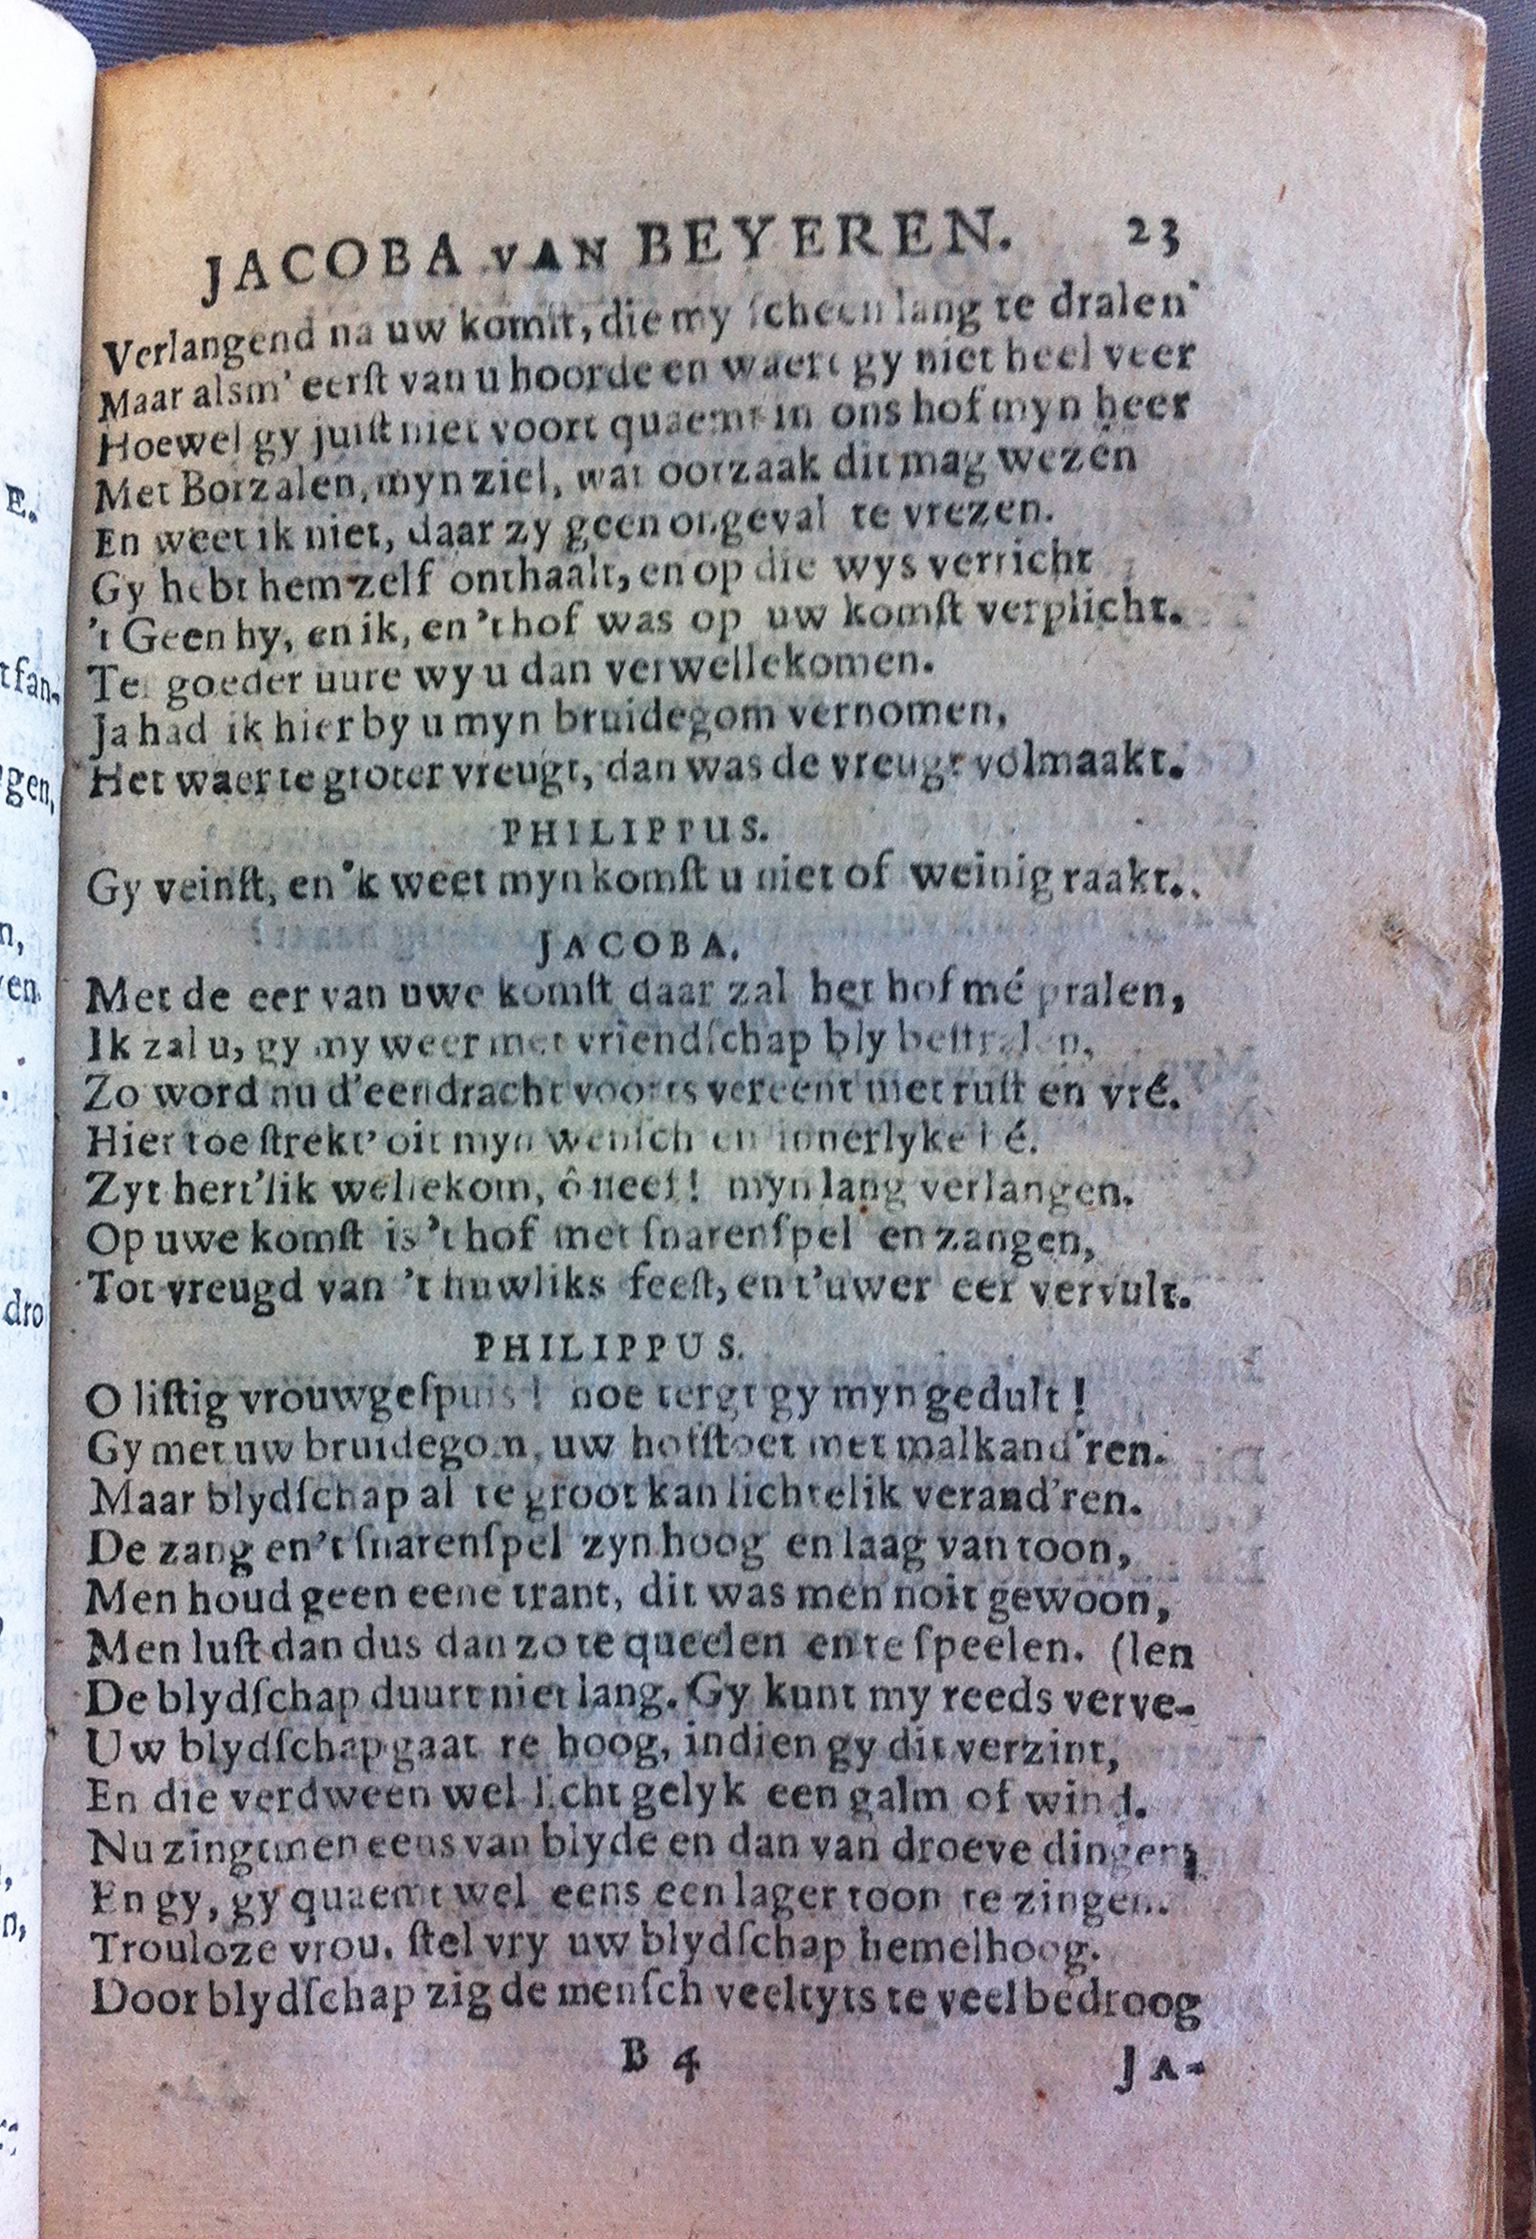 JACOBA VAN BEYEREN. 23
Verlangend na uw komſt, die my ſcheen lang te dralen
Maar alsm' eerſt van u hoorde en waert gy niet heel veer
Hoewel gy juiſt niet voort quaemt in ons hof myn heer
Met Borzalen, myn ziel, wat oorzaak dit mag wezen
En weet ik niet, daar zy geen ongeval te vrezen.
Gy hebt hem zelf onthaalt, en op die wys verricht
't Geen hy, en ik, en 't hof was op uw komſt verplicht.
Ter goeder uure wy u dan verwellekomen.
Ja had ik hier by u myn bruidegom vernomen,
Het waer te groter vreugt, dan was de vreugt volmaakt.
PHILIPPUS.
Gy veinſt, en 'k weet myn komſt u niet of weinig raakt.
JACOBA.
Met de eer van uwe komſt daar zal het hof mé pralen,
Ik zal u, gy my weer met vriendſchap bly beſtralen,
Zo word nu d'eendracht voorts vereent met ruſt en vré.
Hier toe ſtrekt' oit myn wenſch en innerlyke bé.
Zyt hert'lik wellekom, ô neef! myn lang verlangen.
Op uwe komſt is 't hof met ſnarenſpel en zangen,
Tot vreugd van 't huwliks feeſt, en t'uwer eer vervult.
PHILIPPUS.
O liſtig vrouwgeſpuis! hoe tergt gy myn gedult!
Gy met uw bruidegom, uw hofſtoet met malkand'ren.
Maar blydſchap al te groot kan lichtelik verand'ren.
De zang en 't ſnarenſpel zyn hoog en laag van toon,
Men houd geen eene trant, dit was men noit gewoon,
Men luſt dan dus dan zo te queelen en te ſpeelen. (len
De blydſchap duurt niet lang. Gy kunt my reeds verve-
Uw blydſchap gaat te hoog, indien gy dit verzint,
En die verdween wel licht gelyk een galm of wind.
Nu zingtmen eens van blyde en dan van droeve dingen;
En gy, gy quaemt wel eens een lager toon te zingen.
Trouloze vrou, ſtel vry uw blydſchap hemelhoog.
Door blydſchap zig de menſch veeltyts te veel bedroog
B 4 JA-
E.
tfan-
gen,
n,
ven.
dro
n,